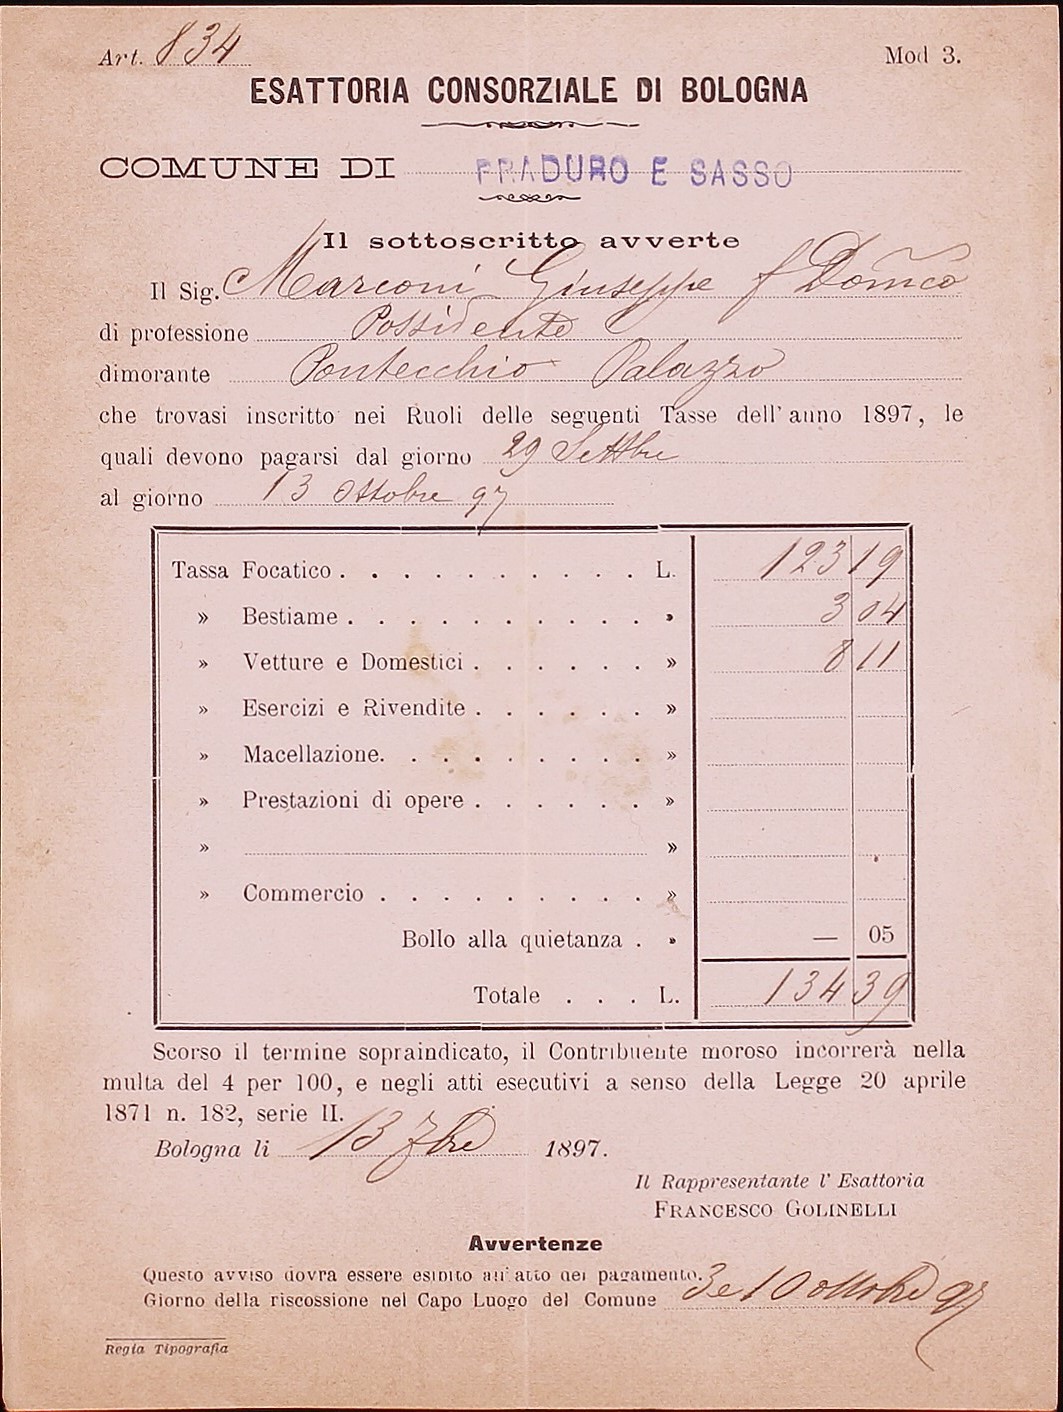 Art. 834
Mod 3.
ESATTORIA CONSORZIALE DI BOLOGNA
COMUNE DI PRADURO E SASSO
Il sottoscritto avverte
Il Sig. Marconi Giuseppe f Domco
di professione Possidente
dimorante Pontecchio Palazzo
che trovasi inscritto nei Ruoli delle seguenti Tasse dell'anno 1897, le
quali devono pagarsi dal giorno 29 Settbre
al giorno 13 Ottobre 97
Tassa Focatico . . . . . . . . . . L. 123 19
» Bestiame . . . . . . . . . . . » 3 04
» Vetture e Domestici . . . . . . » 8 11
» Esercizi e Rivendite . . . . . . »
» Macellazione. . . . . . . . . »
» Prestazioni di opere . . . . . . »
» »
» Commercio . . . . . . . . . »
Bollo alla quietanza . » — 05
Totale . . . L. 134 39
Scorso il termine sopraindicato, il Contribuente moroso incorrerà nella
multa del 4 per 100, e negli atti esecutivi a senso della Legge 20 aprile
1871 n. 182, serie II.
Bologna li 13 7bre 1897.
Il Rappresentante l'Esattoria
FRANCESCO GOLINELLI
Avvertenze
Questo avviso dovra essere esibito all'atto del pagamento.
Giorno della riscossione nel Capo Luogo del Comune 3 e 10 ottobre 97
Regia Tipografia